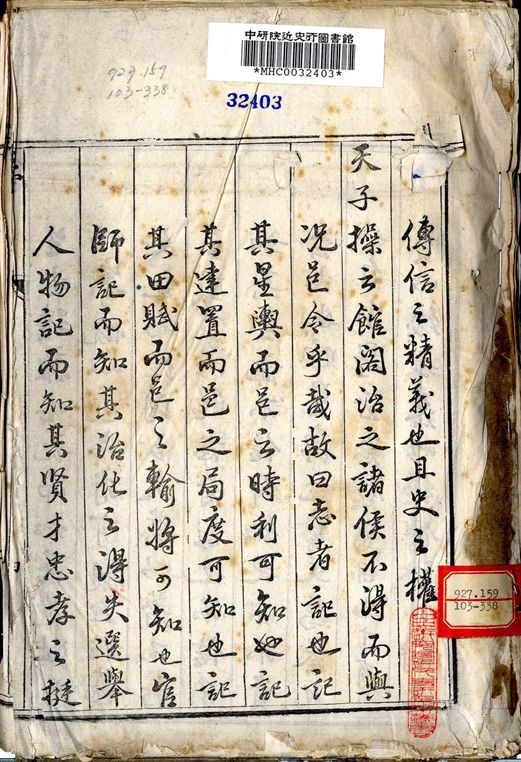 中研院近史所圖書館
*MHC0032403*
32403
927.159
103-338
傳信之精義也且史之權
天子操之館閣治之諸侯不得而與
况邑令乎哉故曰志者記也記
其星輿而邑之時利可知也記
其建置而邑之局度可知也記
其田賦而邑之輸將可知也官
師記而知其治化之得失選舉
人物記而知其賢才忠孝之挺
927.159
103-338